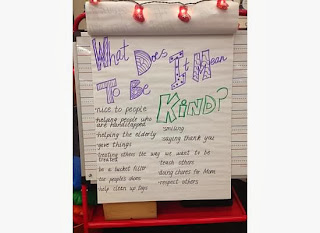 What Does It Mean
To Be KIND?
-nice to people
-helping people who
are handicapped
-helping the elderly
-give things
-smiling
-saying thank you
-treating others the way we want to be
treated
-be a bucket filler
-teach others
-doing chores for Mom
-respect others
-help clean up toys